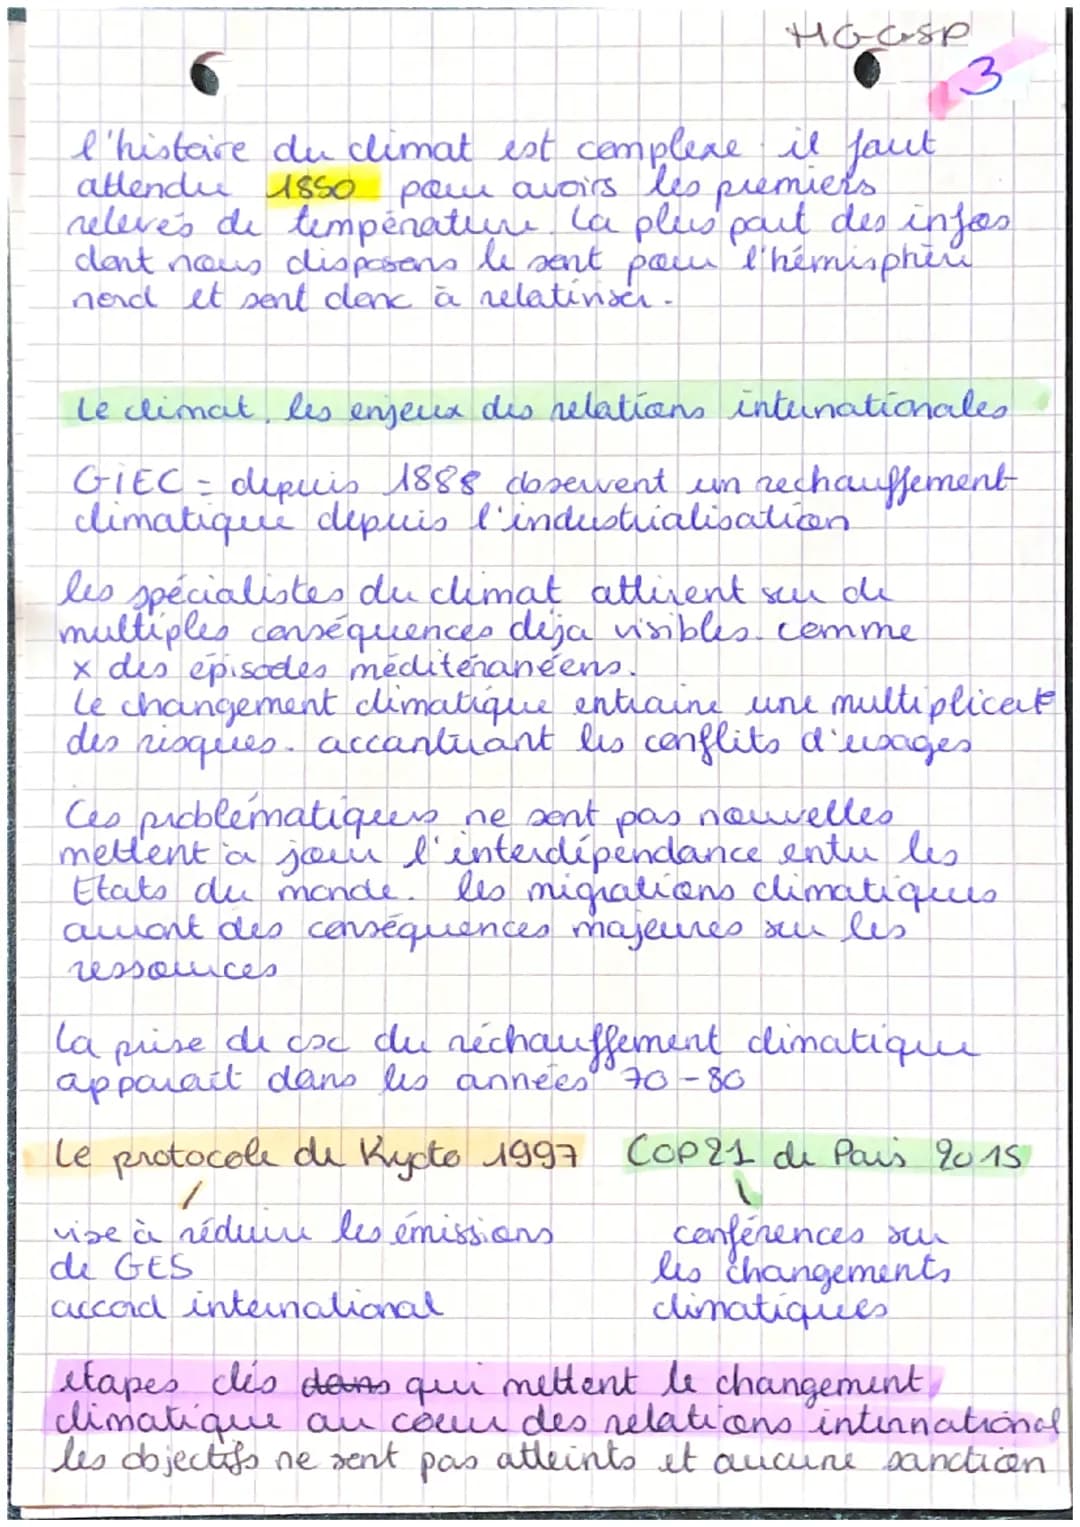 HGGSP
3
l'histoire du climat est complexe il faut
attendre 1850 pour avoirs les premiers
relevés de température. La plus part des infos
dont nous disposons le sont pour l'hémisphère
nord et sont donc à relativiser.
Le climat, les enjeux des relations internationales
GIEC = depuis 1888 observent un rechauffement
climatique depuis l'industrialisation
les spécialistes du climat attirent sur de
multiples conséquences déja visibles. comme
x des épisodes méditéranéens.
Le changement climatique entraine une multiplicat°
des risques. accantuant les conflits d'usages
Ces problématiques ne sont pas nouvelles
mettent à jour l'interdépendance entre les
Etats du monde. les migrations climatiques
auront des conséquences majeures sur les
ressources
La prise de csc du réchauffement climatique
apparait dans les années 70-80
Le protocole de Kyoto 1997 COP21 de Paris 2015
vise à réduire les émissions conférences sur
de GES les changements
accord international climatiques
etapes clés dans qui mettent le changement
climatique au coeur des relations international
les objectifs ne sont pas atteints et aucune sanction